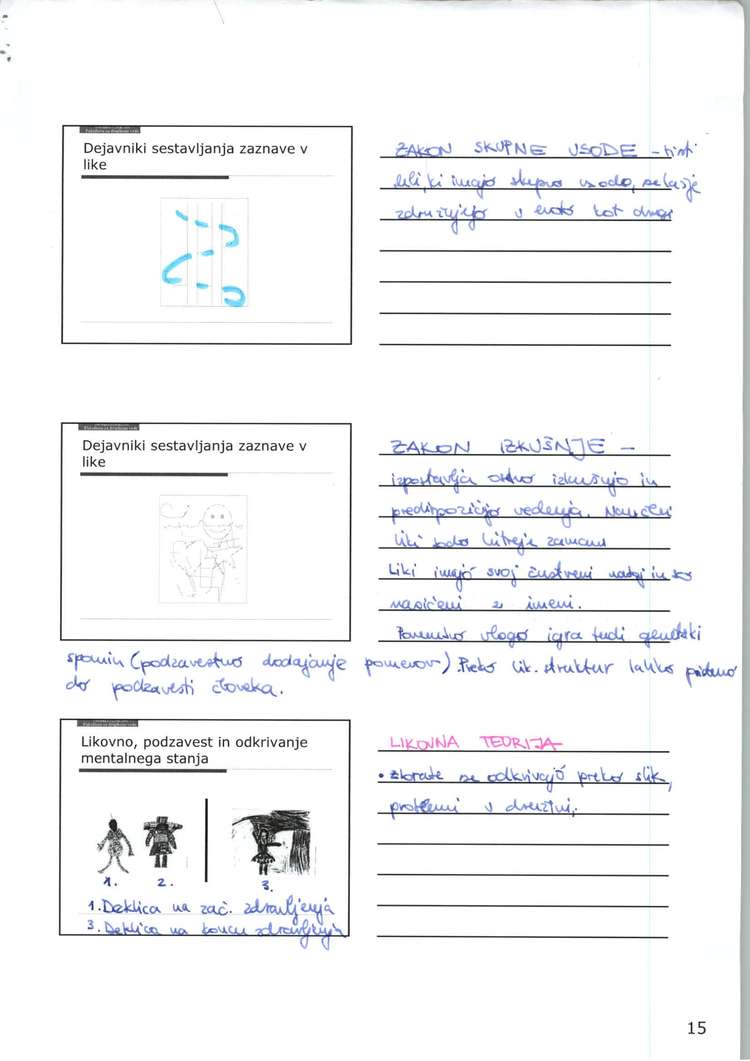 Dejavniki sestavljanja zaznave v
like
ZAKON SKUPNE USODE - tisti
liki, ki imajo skupno usodo, se lažje
združujejo v enoto kot drugi
Dejavniki sestavljanja zaznave v
like
ZAKON IZKUŠNJE -
izpostavlja osebno izkušnjo in
predispozicijo vedenja. Naučeni
liki bodo hitreje zaznani
Liki imajo svoj čustveni naboj in so
nasičeni z imeni.
Pomembno vlogo igra tudi genetski
spomin (podzavestno dodajanje pomenov). Preko lik. struktur lahko pridemo
do podzavesti človeka.
Likovno, podzavest in odkrivanje
mentalnega stanja
1. 2. 3.
1. Deklica na zač. zdravljenja
3. Deklica na koncu zdravljenja
LIKOVNA TEORIJA
• zlorabe se odkrivajo preko slik,
problemi v družini,
15